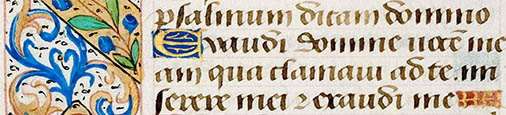 psalmum dicam domino
Exaudi domine uocem me
am qua clamaui ad te. mi
serere mei ⁊ exaudi me